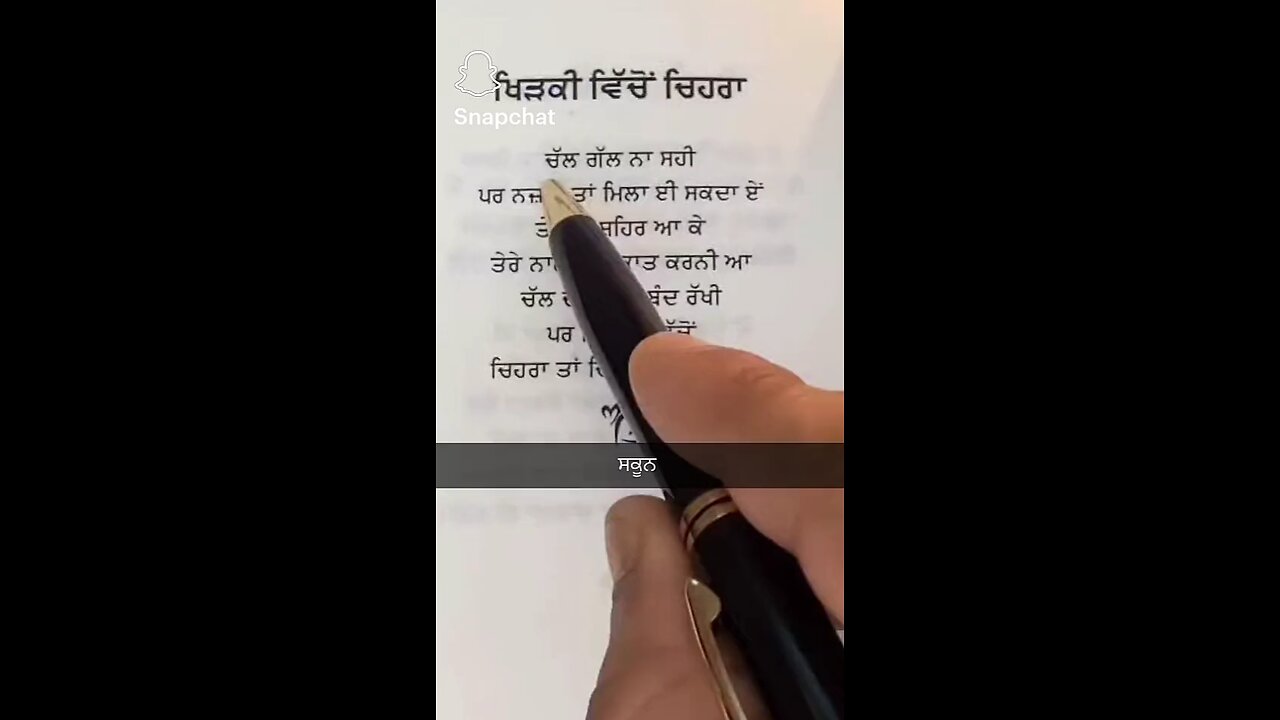 Snapchat
ਖਿੜਕੀ ਵਿੱਚੋਂ ਚਿਹਰਾ
ਚੱਲ ਗੱਲ ਨਾ ਸਹੀ
ਪਰ ਤਾਂ ਮਿਲਾ ਈ ਸਕਦਾ ਏਂ
ਸ਼ਹਿਰ ਆ ਕੇ
ਤੇਰੇ ਕਰਨੀ ਆ
ਚੱਲ ਬੰਦ ਰੱਖੀ
ਪਰ
ਚਿਹਰਾ ਤਾਂ
ਸਕੂਨ